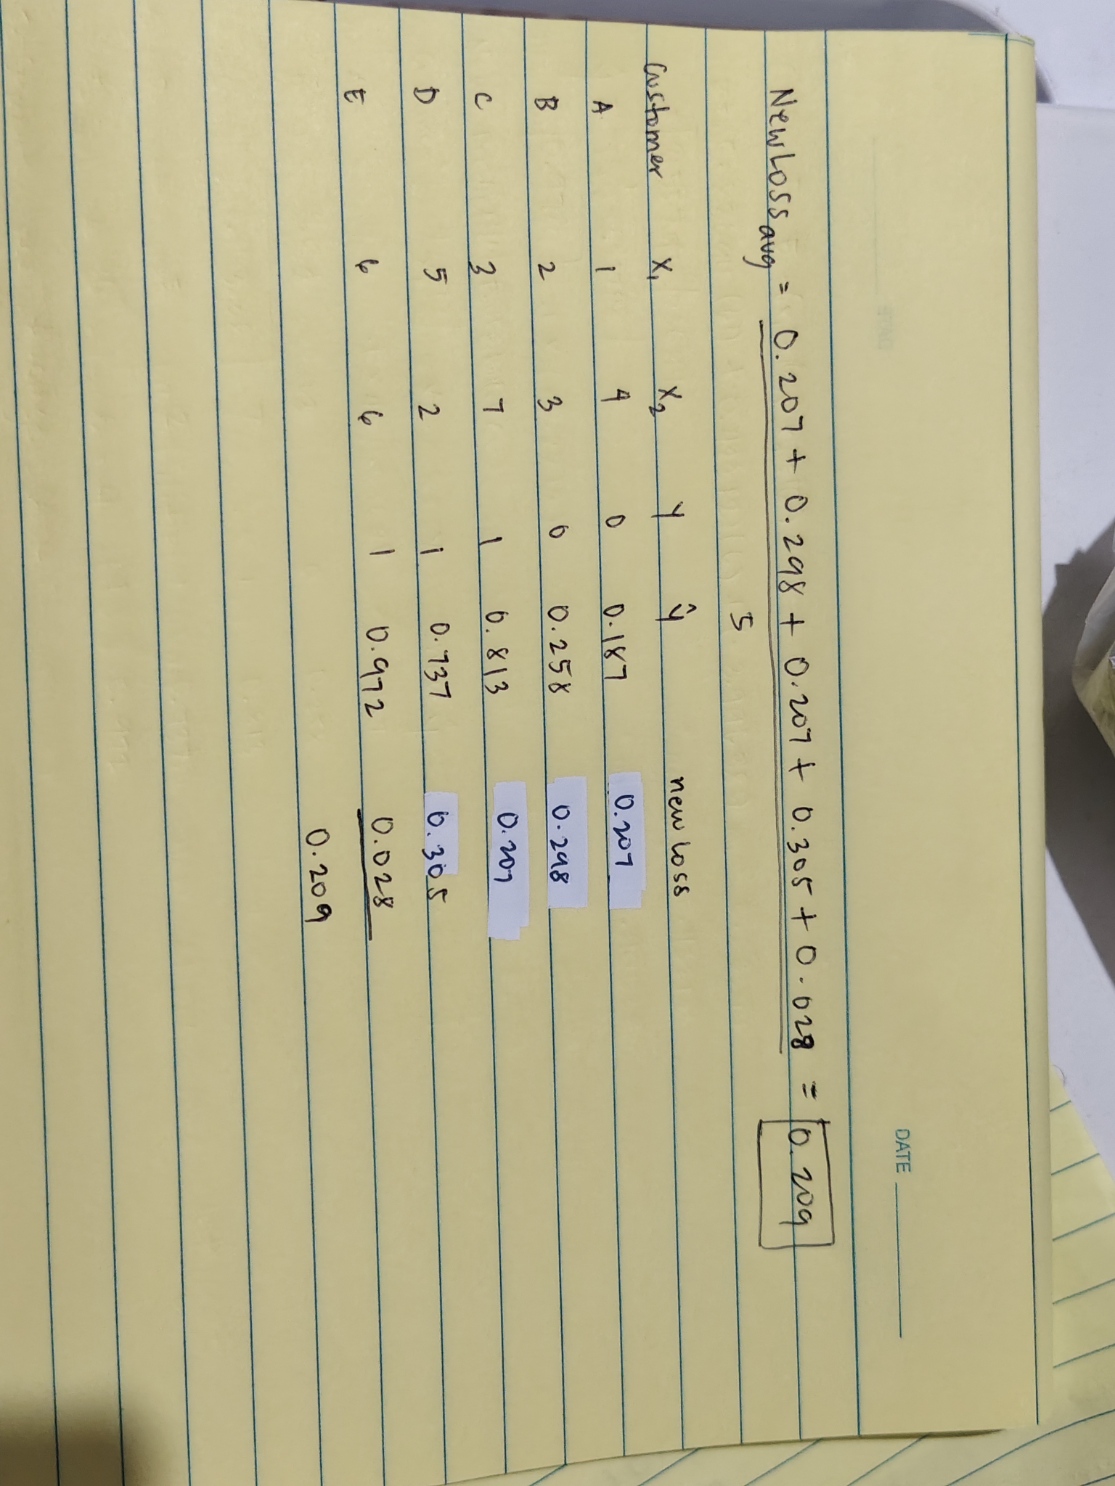 DATE
New Loss avg = 0.207 + 0.298 + 0.207 + 0.305 + 0.028 = 0.209
5
Customer X₁ X₂ Y ŷ new loss
A 1 4 0 0.187 0.207
B 2 3 0 0.258 0.298
C 3 7 1 0.813 0.207
D 5 2 1 0.737 0.305
E 6 6 1 0.972 0.028
0.209